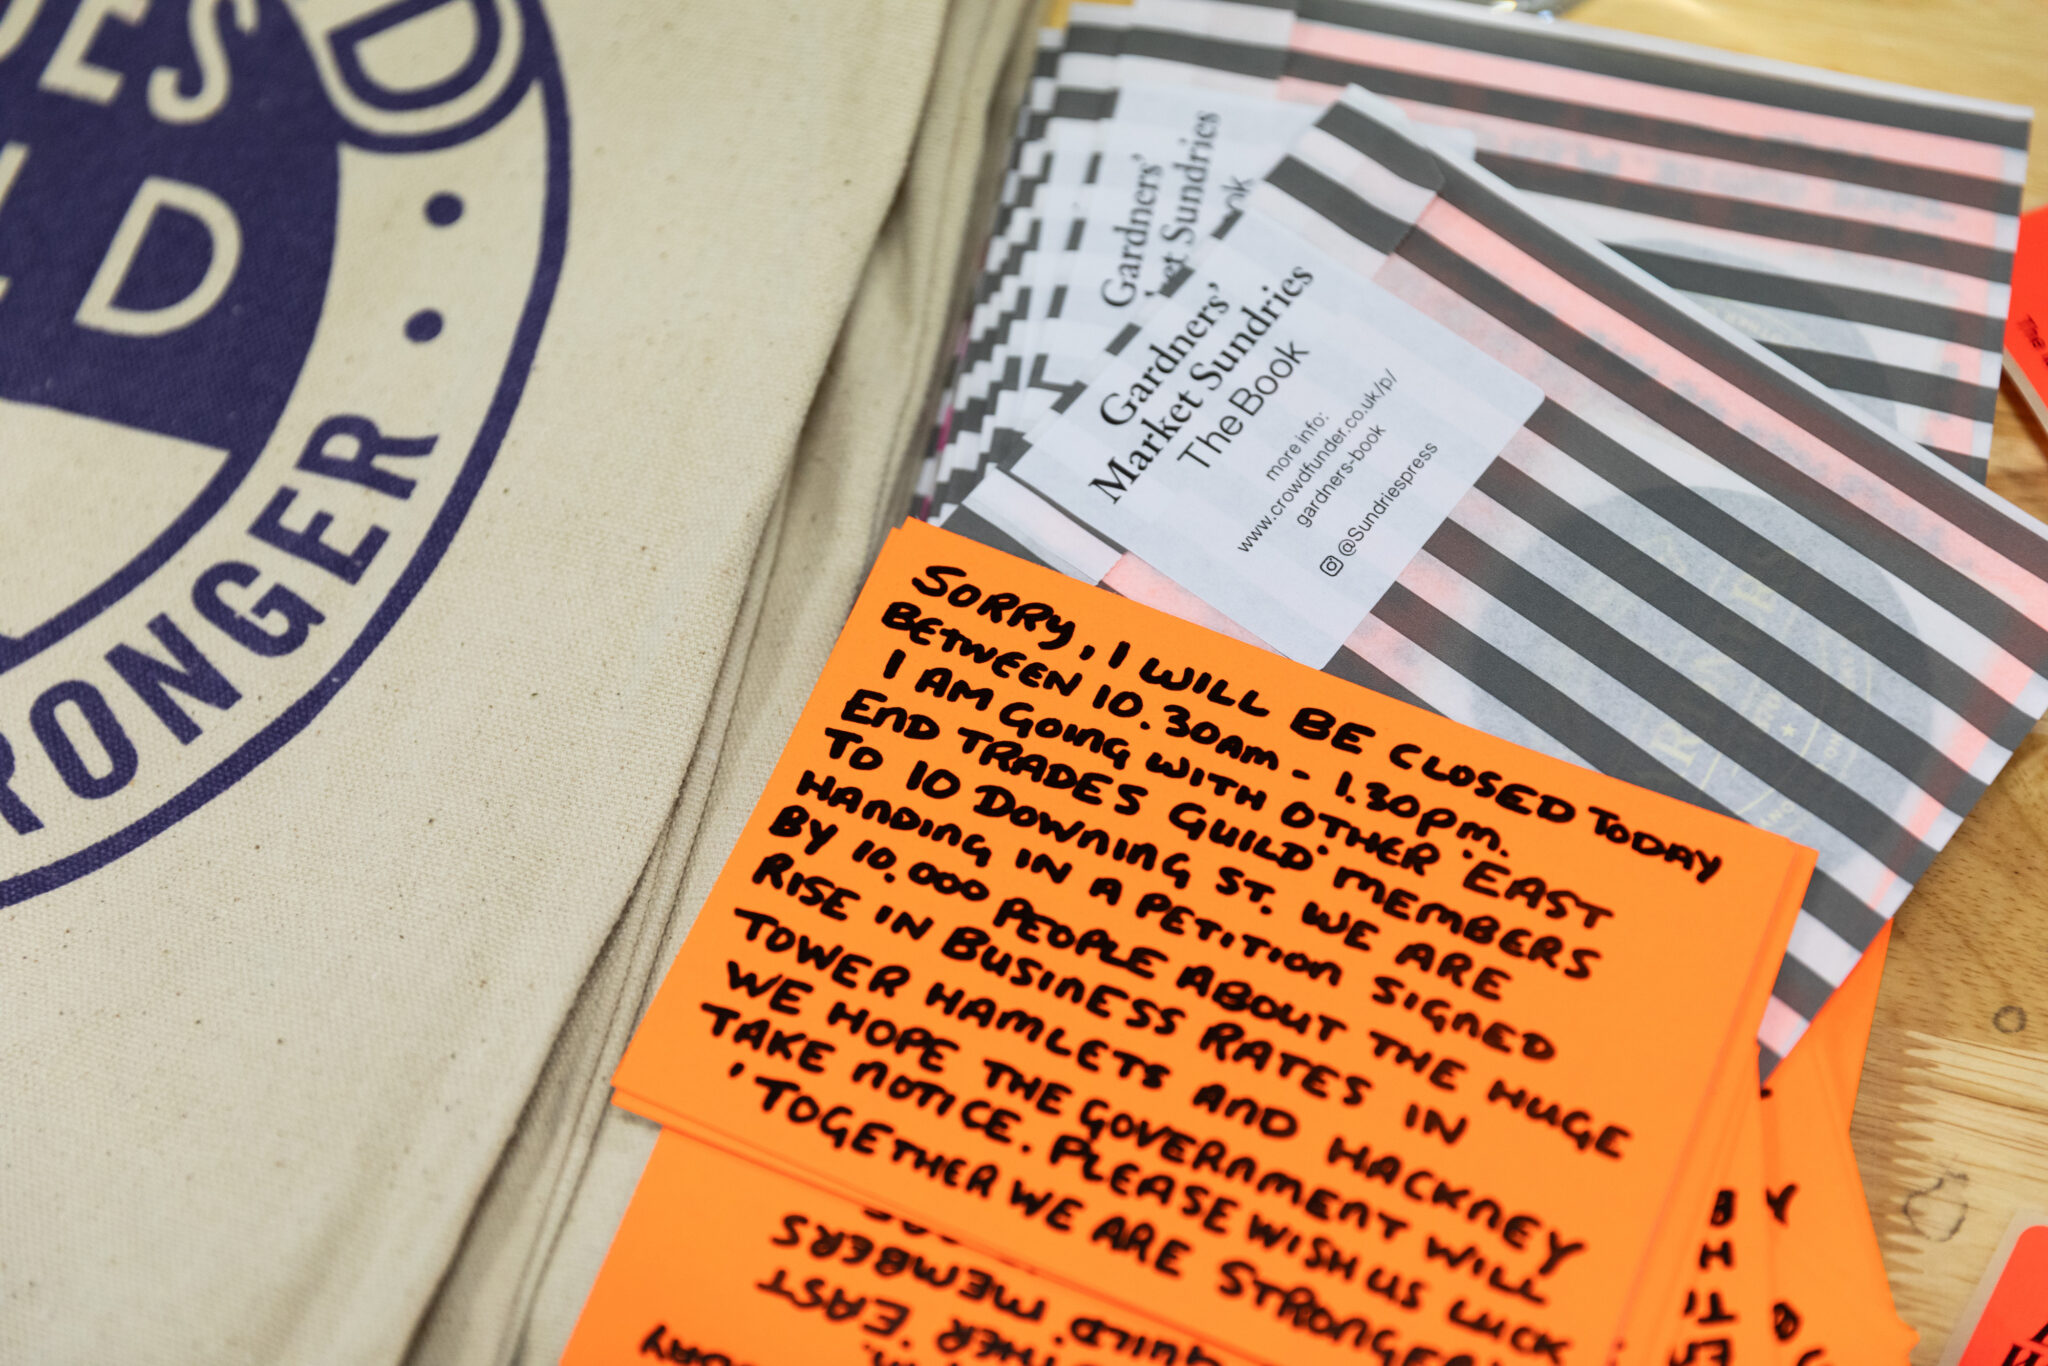 DES
D
LD
RONGER
Gardners'
Market Sundries
The Book
more info:
www.crowdfunder.co.uk/p/
gardners-book
@Sundriespress
Gardners'
et Sundries
ok
SORRY, I WILL BE CLOSED TODAY
BETWEEN 10.30am - 1.30pm.
I AM GOING WITH OTHER 'EAST
END TRADES GUILD' MEMBERS
TO 10 DOWNING ST. WE ARE
HANDING IN A PETITION SIGNED
BY 10,000 PEOPLE ABOUT THE HUGE
RISE IN BUSINESS RATES IN
TOWER HAMLETS AND HACKNEY
WE HOPE THE GOVERNMENT WILL
TAKE NOTICE. PLEASE WISH US LUCK
'TOGETHER WE ARE STRONGER'
MEMBERS
UILD' MEMBERS
HER 'EAST
DAY
The